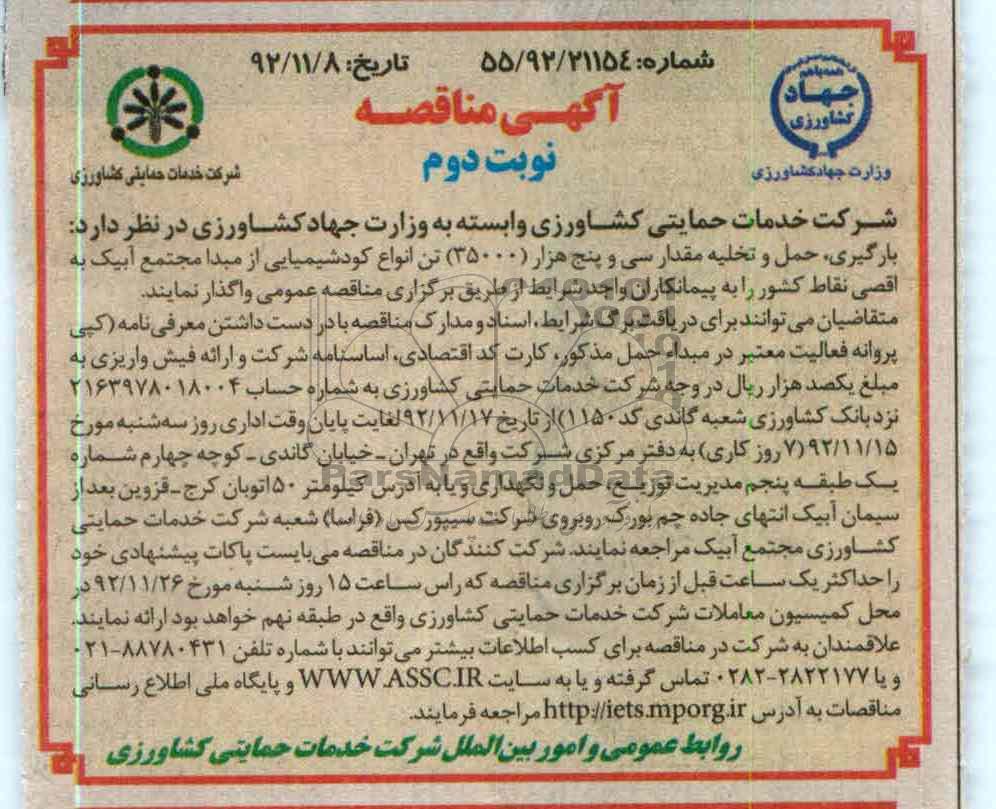 شماره: ۵۵/۹۲/۲۱۱۵۴
تاریخ: ۹۲/۱۱/۸
همه با هم
جهاد
کشاورزی
وزارت جهاد کشاورزی
آگهی مناقصه
نوبت دوم
شرکت خدمات حمایتی کشاورزی
شرکت خدمات حمایتی کشاورزی وابسته به وزارت جهاد کشاورزی در نظر دارد:
بارگیری، حمل و تخلیه مقدار سی و پنج هزار (۳۵۰۰۰) تن انواع کودشیمیایی از مبدا مجتمع آبیک به
اقصی نقاط کشور را به پیمانکاران واجد شرایط از طریق برگزاری مناقصه عمومی واگذار نمایند.
متقاضیان می توانند برای دریافت برگ شرایط، اسناد و مدارک مناقصه با در دست داشتن معرفی نامه (کپی
پروانه فعالیت معتبر در مبداء حمل مذکور، کارت کد اقتصادی، اساسنامه شرکت و ارائه فیش واریزی به
مبلغ یکصد هزار ریال در وجه شرکت خدمات حمایتی کشاورزی به شماره حساب ۲۱۶۳۹۷۸۰۱۸۰۰۴
نزد بانک کشاورزی شعبه گاندی کد ۱۱۵۰) از تاریخ ۹۲/۱۱/۱۷ لغایت پایان وقت اداری روز سه‌شنبه مورخ
۹۲/۱۱/۱۵ (۷ روز کاری) به دفتر مرکزی شرکت واقع در تهران ـ خیابان گاندی ـ کوچه چهارم شماره
یک طبقه پنجم مدیریت توزیع، حمل و نگهداری و یا به آدرس کیلومتر ۵۰ اتوبان کرج ـ قزوین بعد از
سیمان آبیک انتهای جاده چم بورک روبروی شرکت سیپورکس (فراسا) شعبه شرکت خدمات حمایتی
کشاورزی مجتمع آبیک مراجعه نمایند. شرکت کنندگان در مناقصه می‌بایست پاکات پیشنهادی خود
را حداکثر یک ساعت قبل از زمان برگزاری مناقصه که راس ساعت ۱۵ روز شنبه مورخ ۹۲/۱۱/۲۶ در
محل کمیسیون معاملات شرکت خدمات حمایتی کشاورزی واقع در طبقه نهم خواهد بود ارائه نمایند.
علاقمندان به شرکت در مناقصه برای کسب اطلاعات بیشتر می توانند با شماره تلفن ۸۸۷۸۰۴۳۱-۰۲۱
و یا ۲۸۲۲۱۷۷-۰۲۸۲ تماس گرفته و یا به سایت WWW.ASSC.IR و پایگاه ملی اطلاع رسانی
مناقصات به آدرس http://iets.mporg.ir مراجعه فرمایند.
روابط عمومی و امور بین الملل شرکت خدمات حمایتی کشاورزی
ParsNamadData